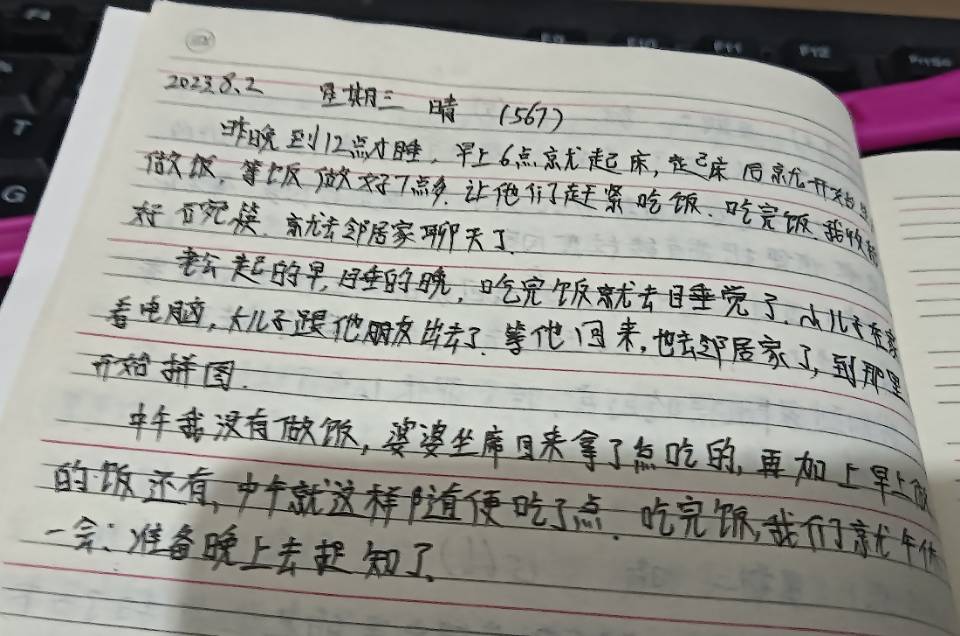 2023.8.2 星期三 晴 (567)
昨晚到12点才睡，早上6点就起床，起床后就开始
做饭，等饭做好7点多，让他们赶紧吃饭、吃完饭、我收拾
好碗筷，就去邻居家聊天了
老公起的早，睡的晚，吃完饭就去睡觉了，小儿子在家
看电脑，大儿子跟他朋友出去了，等他回来，也去邻居家了，到那里
开始拼图.
中午我没有做饭，婆婆坐席回来拿了点吃的，再加上早上做
的饭还有，中午就这样随便吃了点. 吃完饭，我们就午休
一会；准备晚上去起知了.
T
G
F9
F10
F11
F12
PrtSc